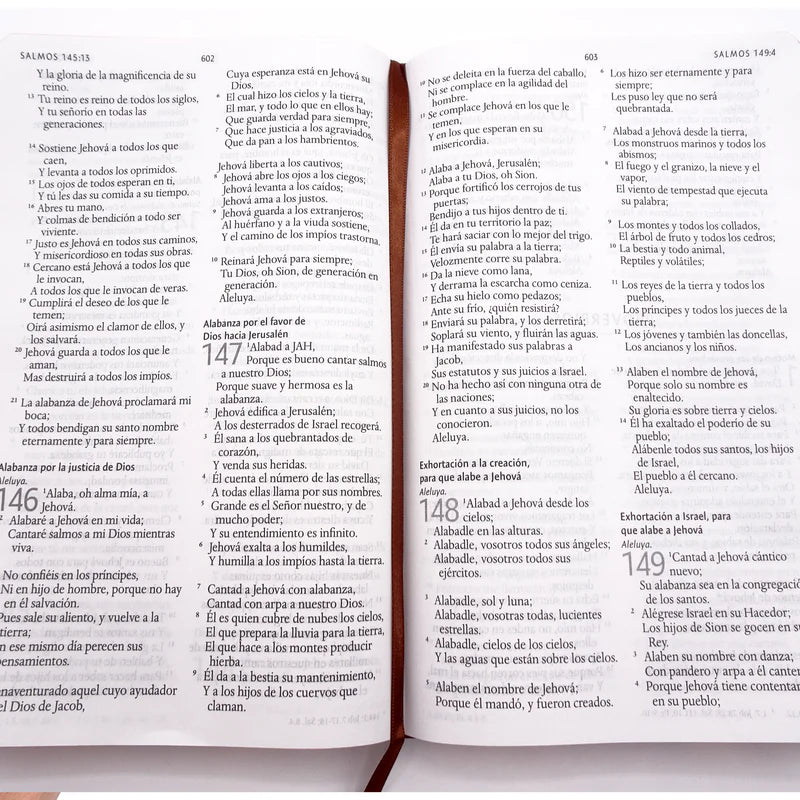 SALMOS 145:13
602
Y la gloria de la magnificencia de su
reino.
13 Tu reino es reino de todos los siglos,
Y tu señorío en todas las
generaciones.
14 Sostiene Jehová a todos los que
caen,
Y levanta a todos los oprimidos.
15 Los ojos de todos esperan en ti,
Y tú les das su comida a su tiempo.
16 Abres tu mano,
Y colmas de bendición a todo ser
viviente.
17 Justo es Jehová en todos sus caminos,
Y misericordioso en todas sus obras.
18 Cercano está Jehová a todos los que
le invocan,
A todos los que le invocan de veras.
19 Cumplirá el deseo de los que le
temen;
Oirá asimismo el clamor de ellos, y
los salvará.
20 Jehová guarda a todos los que le
aman,
Mas destruirá a todos los impíos.
21 La alabanza de Jehová proclamará mi
boca;
Y todos bendigan su santo nombre
eternamente y para siempre.
Alabanza por la justicia de Dios
Aleluya.
146 1Alaba, oh alma mía, a
Jehová.
2 Alabaré a Jehová en mi vida;
Cantaré salmos a mi Dios mientras
viva.
No confiéis en los príncipes,
Ni en hijo de hombre, porque no hay
en él salvación.
Pues sale su aliento, y vuelve a la
tierra;
en ese mismo día perecen sus
pensamientos.
naventurado aquel cuyo ayudador
el Dios de Jacob,
Cuya esperanza está en Jehová su
Dios,
6 El cual hizo los cielos y la tierra,
El mar, y todo lo que en ellos hay;
Que guarda verdad para siempre,
7 Que hace justicia a los agraviados,
Que da pan a los hambrientos.
Jehová liberta a los cautivos;
8 Jehová abre los ojos a los ciegos;
Jehová levanta a los caídos;
Jehová ama a los justos.
9 Jehová guarda a los extranjeros;
Al huérfano y a la viuda sostiene,
Y el camino de los impíos trastorna.
10 Reinará Jehová para siempre;
Tu Dios, oh Sion, de generación en
generación.
Aleluya.
Alabanza por el favor de
Dios hacia Jerusalén
147 1Alabad a JAH,
Porque es bueno cantar salmos
a nuestro Dios;
Porque suave y hermosa es la
alabanza.
2 Jehová edifica a Jerusalén;
A los desterrados de Israel recogerá.
3 Él sana a los quebrantados de
corazón,
Y venda sus heridas.
4 Él cuenta el número de las estrellas;
A todas ellas llama por sus nombres.
5 Grande es el Señor nuestro, y de
mucho poder;
Y su entendimiento es infinito.
6 Jehová exalta a los humildes,
Y humilla a los impíos hasta la tierra.
7 Cantad a Jehová con alabanza,
Cantad con arpa a nuestro Dios.
8 Él es quien cubre de nubes los cielos,
El que prepara la lluvia para la tierra,
El que hace a los montes producir
hierba.
9 Él da a la bestia su mantenimiento,
Y a los hijos de los cuervos que
claman.
603
SALMOS 149:4
10 No se deleita en la fuerza del caballo,
Ni se complace en la agilidad del
hombre.
11 Se complace Jehová en los que le
temen,
Y en los que esperan en su
misericordia.
12 Alaba a Jehová, Jerusalén;
Alaba a tu Dios, oh Sion.
13 Porque fortificó los cerrojos de tus
puertas;
Bendijo a tus hijos dentro de ti.
14 Él da en tu territorio la paz;
Te hará saciar con lo mejor del trigo.
15 Él envía su palabra a la tierra;
Velozmente corre su palabra.
16 Da la nieve como lana,
Y derrama la escarcha como ceniza.
17 Echa su hielo como pedazos;
Ante su frío, ¿quién resistirá?
18 Enviará su palabra, y los derretirá;
Soplará su viento, y fluirán las aguas.
19 Ha manifestado sus palabras a
Jacob,
Sus estatutos y sus juicios a Israel.
20 No ha hecho así con ninguna otra de
las naciones;
Y en cuanto a sus juicios, no los
conocieron.
Aleluya.
Exhortación a la creación,
para que alabe a Jehová
Aleluya.
148 1Alabad a Jehová desde los
cielos;
Alabadle en las alturas.
2 Alabadle, vosotros todos sus ángeles;
Alabadle, vosotros todos sus
ejércitos.
3 Alabadle, sol y luna;
Alabadle, vosotras todas, lucientes
estrellas.
4 Alabadle, cielos de los cielos,
Y las aguas que están sobre los cielos.
5 Alaben el nombre de Jehová;
Porque él mandó, y fueron creados.
6 Los hizo ser eternamente y para
siempre;
Les puso ley que no será
quebrantada.
7 Alabad a Jehová desde la tierra,
Los monstruos marinos y todos los
abismos;
8 El fuego y el granizo, la nieve y el
vapor,
El viento de tempestad que ejecuta
su palabra;
9 Los montes y todos los collados,
El árbol de fruto y todos los cedros;
10 La bestia y todo animal,
Reptiles y volátiles;
11 Los reyes de la tierra y todos los
pueblos,
Los príncipes y todos los jueces de la
tierra;
12 Los jóvenes y también las doncellas,
Los ancianos y los niños.
13 Alaben el nombre de Jehová,
Porque solo su nombre es
enaltecido.
Su gloria es sobre tierra y cielos.
14 Él ha exaltado el poderío de su
pueblo;
Alábenle todos sus santos, los hijos
de Israel,
El pueblo a él cercano.
Aleluya.
Exhortación a Israel, para
que alabe a Jehová
Aleluya.
149 1Cantad a Jehová cántico
nuevo;
Su alabanza sea en la congregació
de los santos.
2 Alégrese Israel en su Hacedor;
Los hijos de Sion se gocen en su
Rey.
3 Alaben su nombre con danza;
Con pandero y arpa a él canten
4 Porque Jehová tiene contentam
en su pueblo;